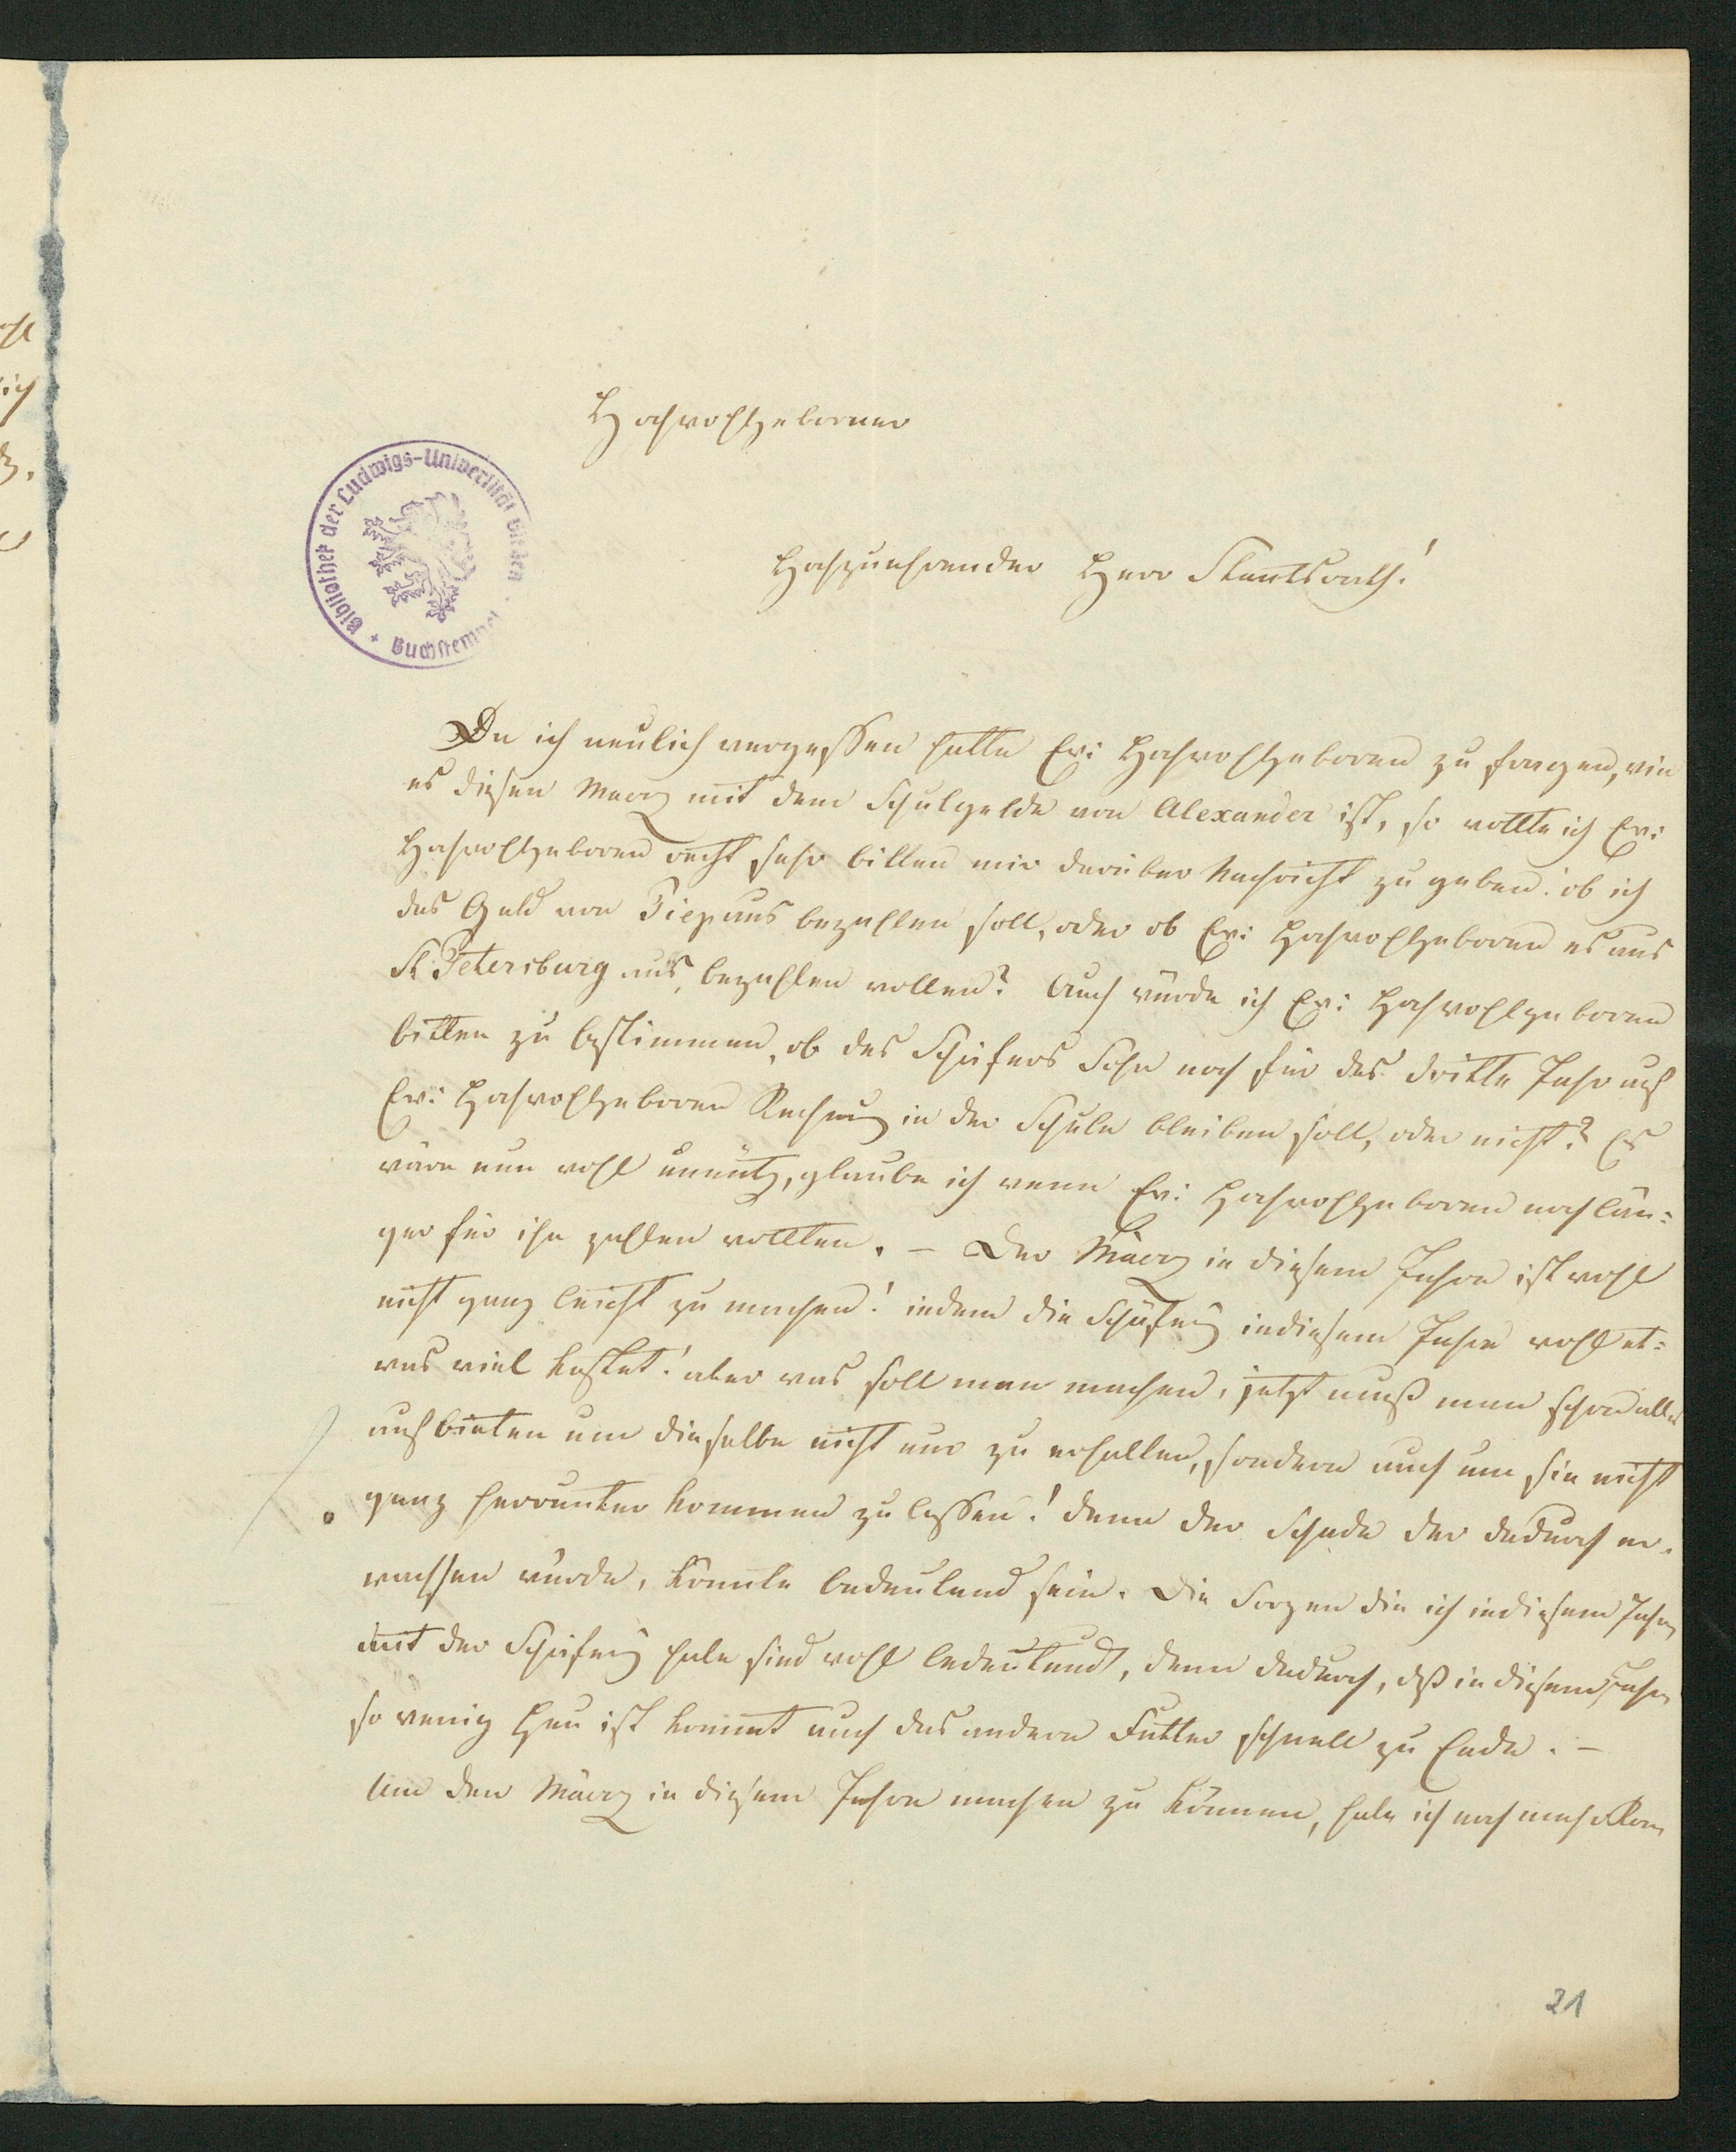 Hochwohlgeborner
Hochzuehrender Herr Staatsrath!
Bibliothek der Ludwigs-Universität Gießen
Buchstempel
Da ich neulich vergessen hatte Ew: Hochwohlgeboren zu fragen, wie
es diesen Maerz mit dem Schulgelde von Alexander ist, so wollte ich Ew:
Hochwohlgeboren recht sehr bitten mir darüber Nachricht zu geben: ob ich
das Geld von Piep aus bezahlen soll, oder ob Ew: Hochwohlgeboren es aus
St Petersburg aus, bezahlen wollen? Auch würde ich Ew: Hochwohlgeboren
bitten zu bestimmen, ob des Schäfers Sohn noch für das dritte Jahr auf
Ew: Hochwohlgeboren Rechnung in der Schule bleiben soll, oder nicht? Es
wäre nun wohl unnütz, glaube ich wenn Ew: Hochwohlgeboren noch län:
ger für ihn zahlen wollten. – Der Maerz in diesem Jahre ist wohl
nicht ganz leicht zu machen! indem die Schäferei in diesem Jahre wohl et:
was viel kostet! aber was soll man machen, jetzt muß man schon alles
aufbieten um dieselbe nicht nur zu erhalten, sondern auch um sie nicht
ganz herrunter kommen zu lassen! denn der Schade der dadurch er-
wachsen würde, könnte bedeutend sein. Die Sorgen die ich in diesem Jahre
mit der Schäferei habe sind wohl bedeutend, denn dadurch, daß in diesem Jahre
so wenig Heu ist kommt auch das andere Futter schnell zu Ende. –
Um den Maerz in diesem Jahre machen zu können, habe ich noch mehr
21